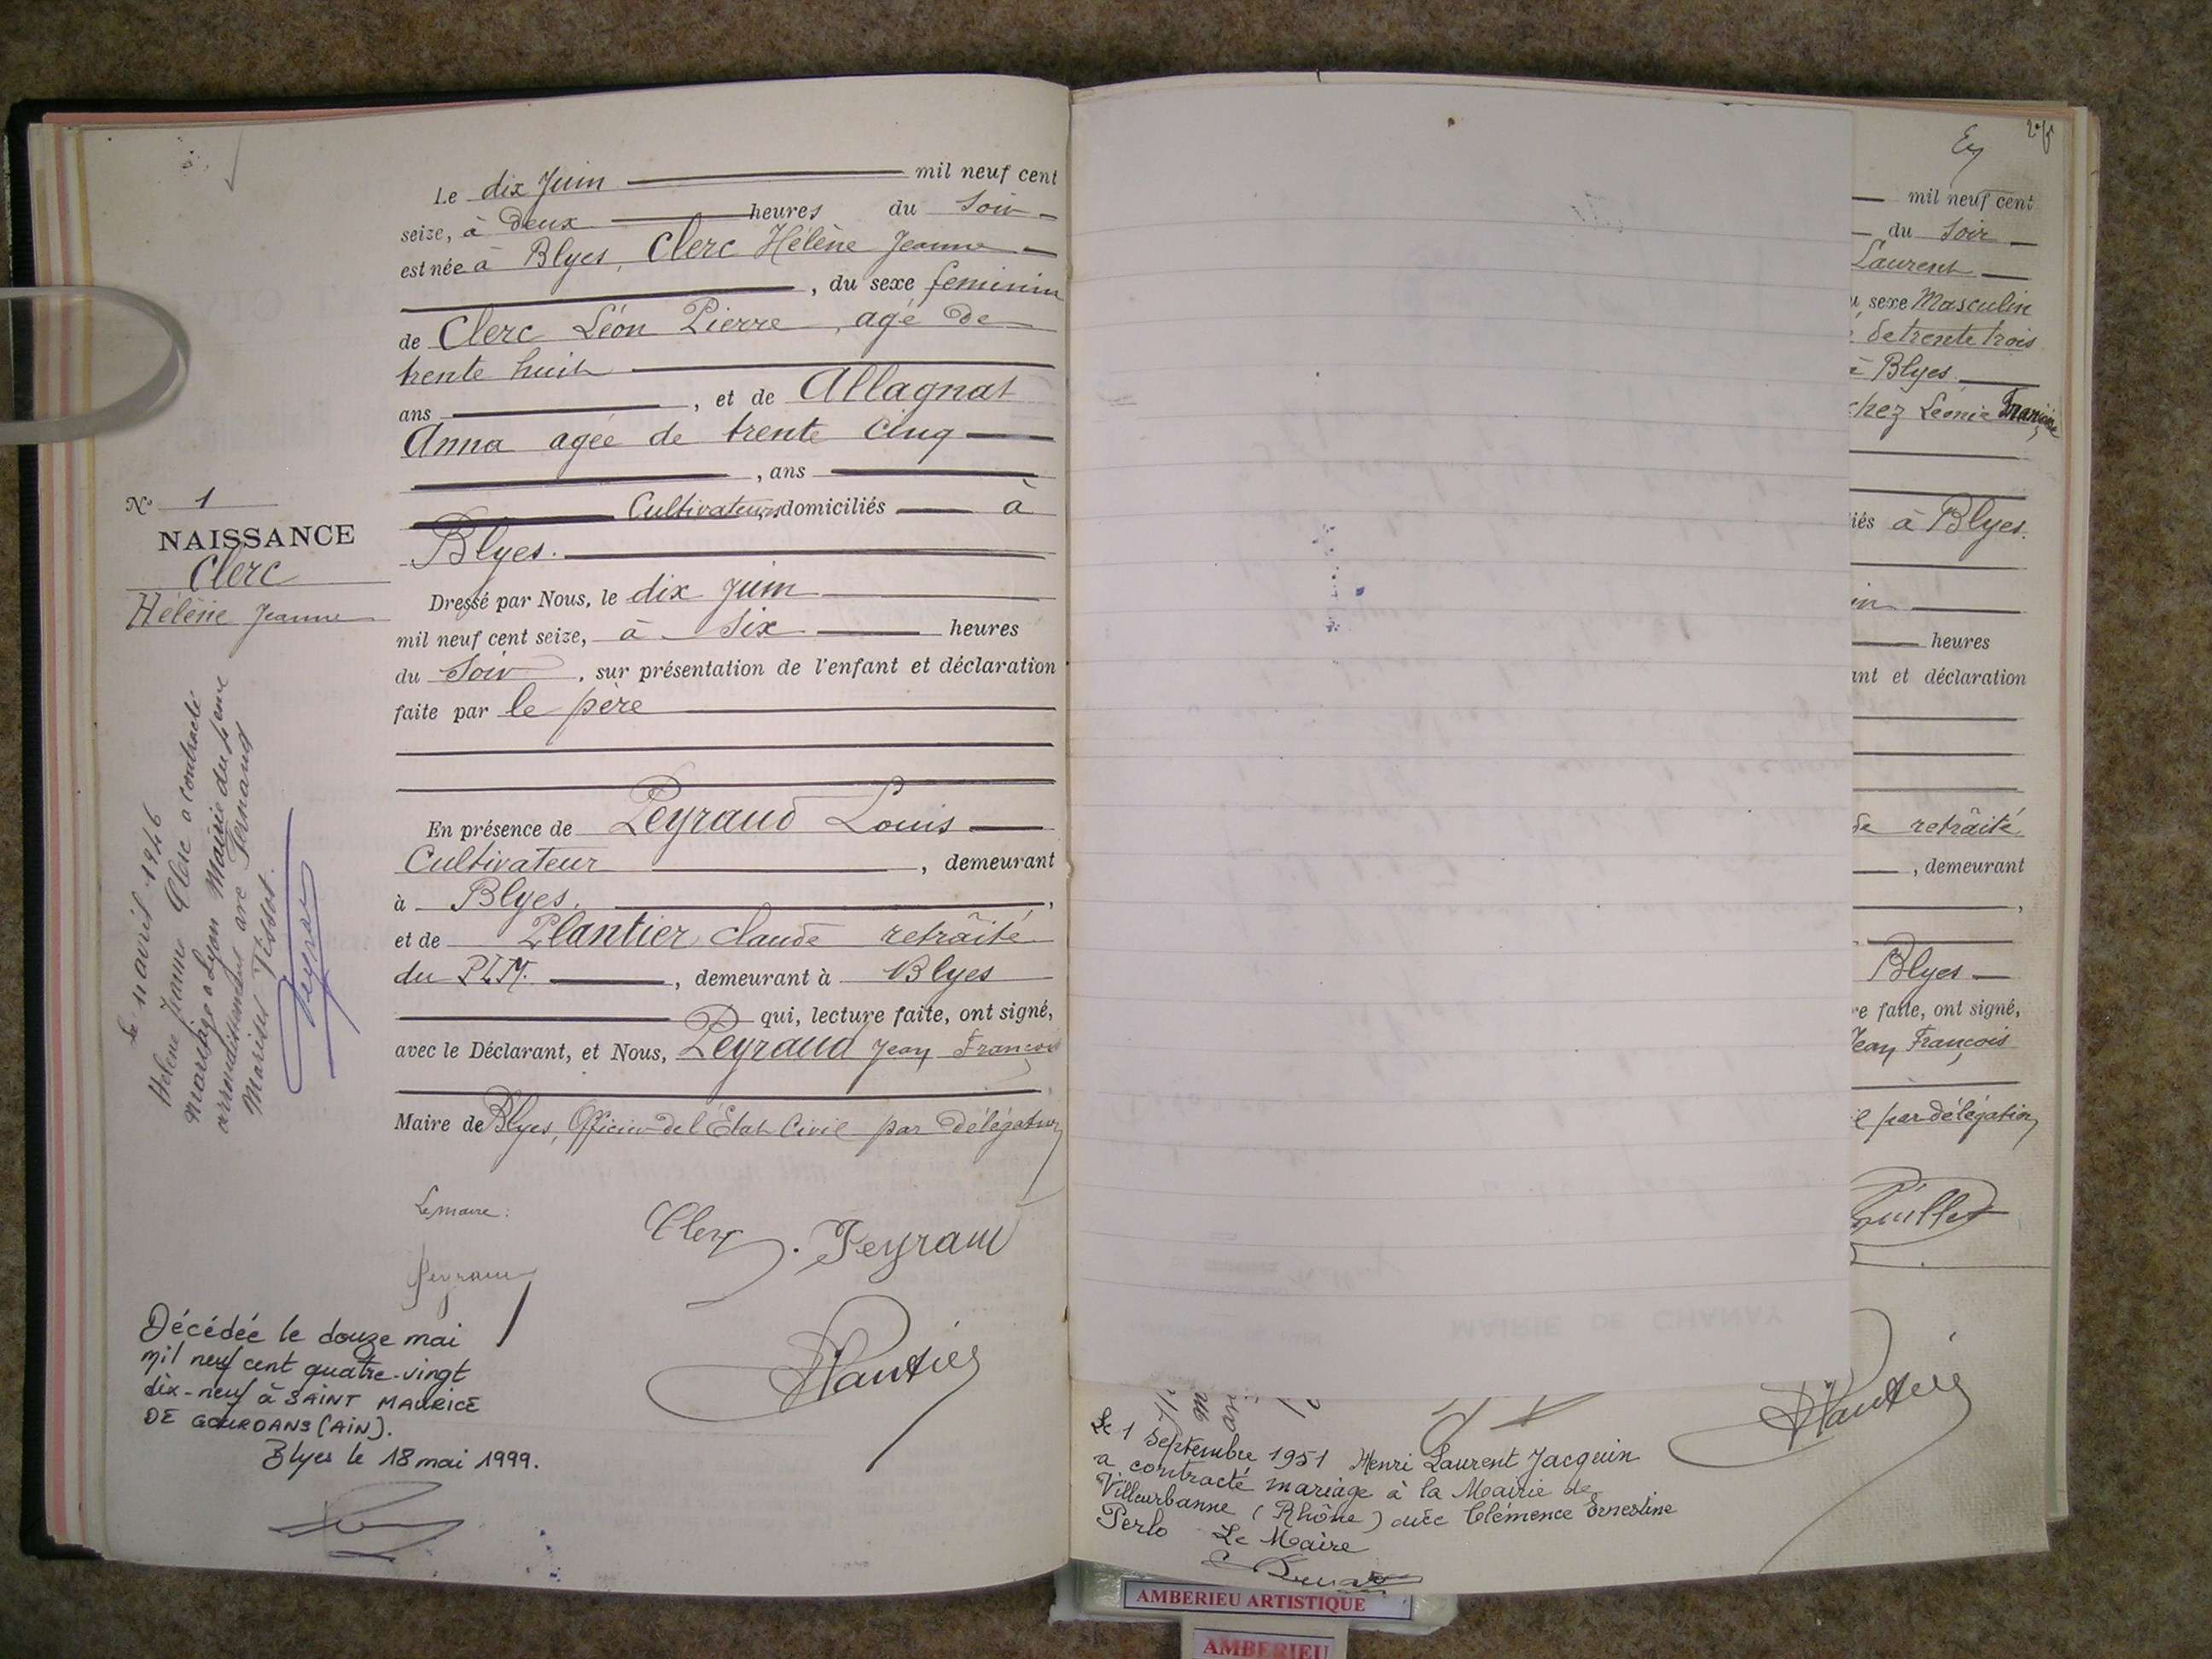 Le dix Juin mil neuf cent
seize, à deux heures du soir
est née à Blyes, Clerc Hélène Jeanne
, du sexe feminin
de Clerc Léon Pierre, agé de
trente huit
ans , et de Allagnat
Anna agée de trente cinq
, ans
Cultivateurs domiciliés à
Blyes.
Dressé par Nous, le dix Juin
mil neuf cent seize, à six heures
du soir , sur présentation de l'enfant et déclaration
faite par le père
En présence de Peyraud Louis
Cultivateur , demeurant
à Blyes. ,
et de Plantier claude retrâité
du P.L.M. , demeurant à Blyes
qui, lecture faite, ont signé,
avec le Déclarant, et Nous, Peyraud Jean François
Maire de Blyes, Officier de l'État Civil par délégation
Le maire :
Clerc . Peyraud
Peyraud
Plantier
N° 1
NAISSANCE
Clerc
Hélène Jeanne
Le 11 avril 1946
Hélène Jeanne Clerc a contracté
mariage à Lyon Mairie du
arrondissement avec Fernand
Marius Tissot.
Peyraud
Décédée le douze mai
mil neuf cent quatre-vingt
dix-neuf à SAINT MAURICE
DE GOURDANS (AIN).
Blyes le 18 mai 1999.
mil neuf cent
du soir
Laurent
sexe Masculin
de trente trois
à Blyes
chez Léonie Françoise
iés à Blyes.
in
heures
ant et déclaration
de retrâité
, demeurant
,
Blyes
re faite, ont signé,
Jean François
l par délégation
Plantier
MAIRIE DE CHANAY
Le 1 septembre 1951 Henri Laurent Jacquin
a contracté mariage à la Mairie de
Villeurbanne (Rhône) avec Clémence Ernestine
Perlo Le Maire
AMBERIEU ARTISTIQUE
AMBERIEU